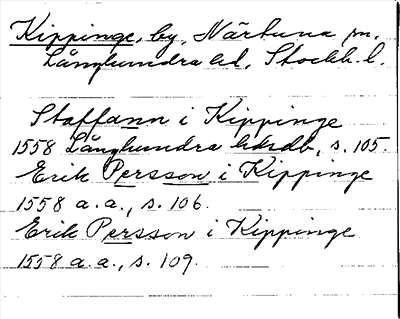 Kippinge, by, Närtuna sn,
Långhundra hd, Stockh. l.
Staffann i Kippinge
1558 Långhundra hdsdb, s. 105.
Erik Persson i Kippinge
1558 a. a., s. 106.
Erik Persson i Kippinge
1558 a. a., s. 109.